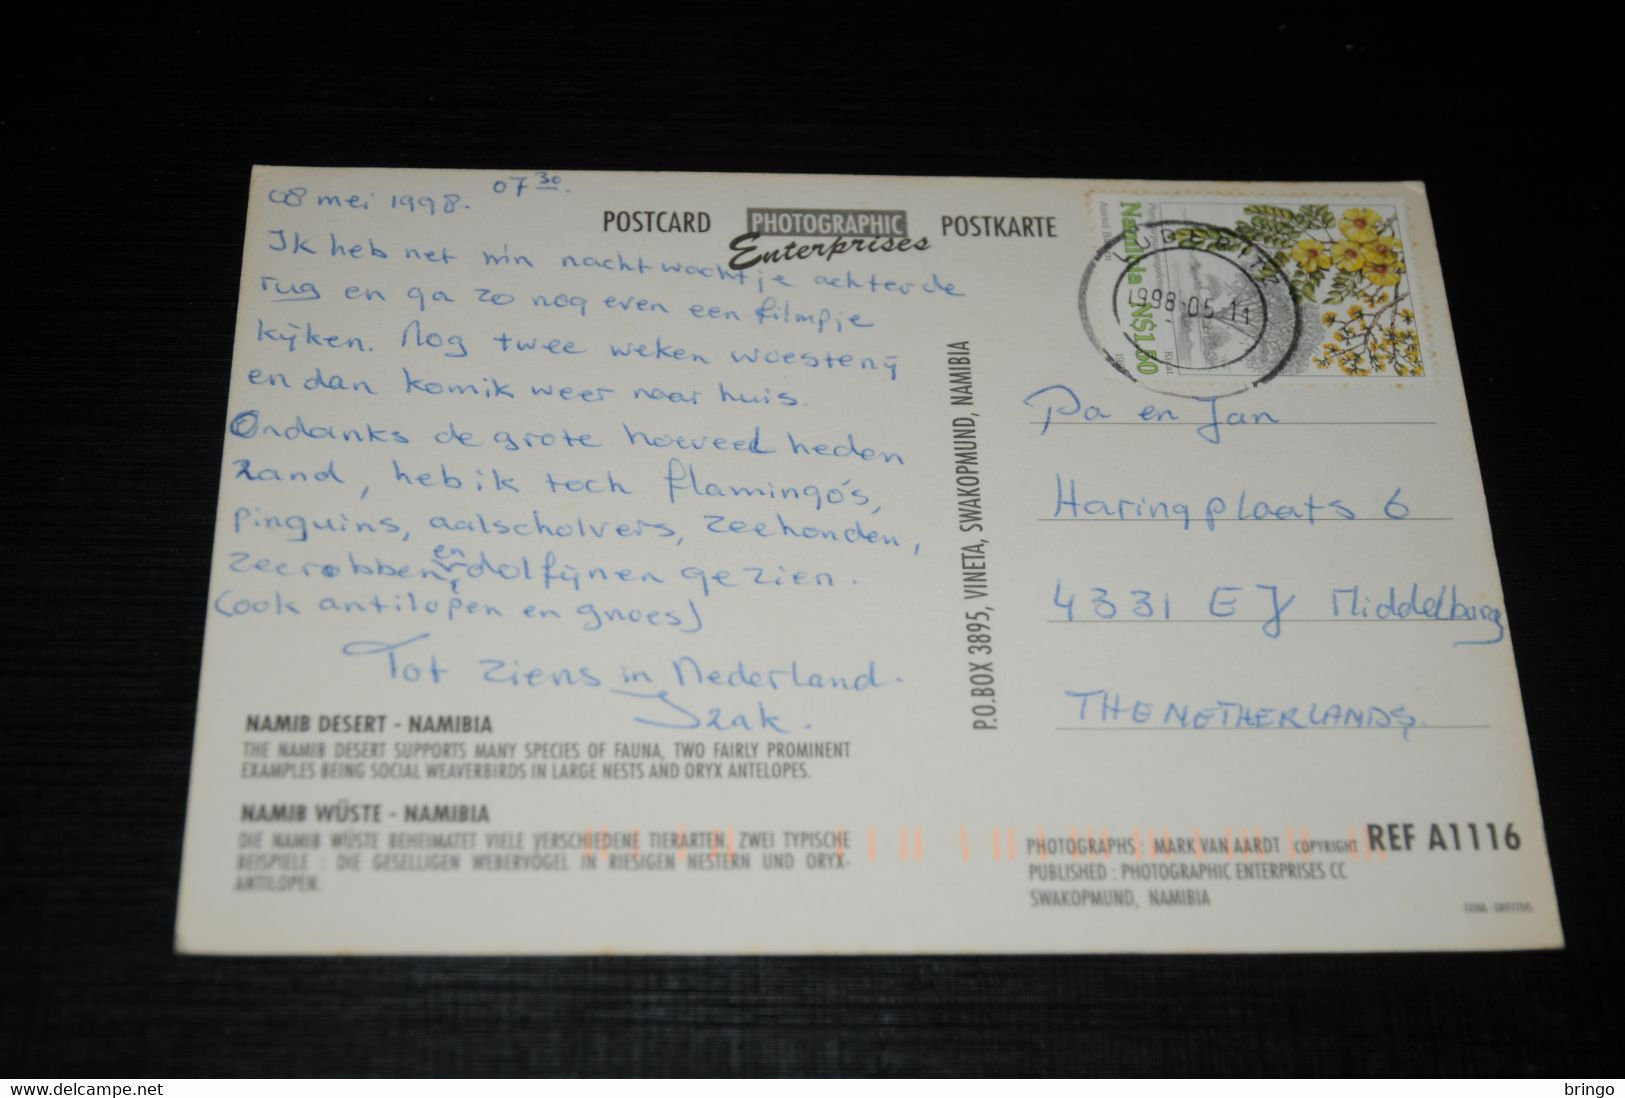 08 mei 1998. 07 30.
Ik heb net m'n nachtwachtje achter de
rug en ga zo nog even een filmpje
kijken. Nog twee weken woestenij
en dan kom ik weer naar huis.
Ondanks de grote hoeveelheden
zand, heb ik toch flamingo's,
pinguins, aalscholvers, zeehonden,
zeerobben, en dolfijnen gezien.
(ook antilopen en gnoes)
Tot ziens in Nederland.
Izak.
POSTCARD PHOTOGRAPHIC Enterprises POSTKARTE
Namibia N$1.50
LUDERITZ
1998-05-11
P.O.BOX 3895, VINETA, SWAKOPMUND, NAMIBIA
Pa en Jan
Haringplaats 6
4331 EJ Middelburg
THE NETHERLANDS.
NAMIB DESERT - NAMIBIA
THE NAMIB DESERT SUPPORTS MANY SPECIES OF FAUNA, TWO FAIRLY PROMINENT
EXAMPLES BEING SOCIAL WEAVERBIRDS IN LARGE NESTS AND ORYX ANTELOPES.
NAMIB WÜSTE - NAMIBIA
DIE NAMIB WÜSTE BEHEIMATET VIELE VERSCHIEDENE TIERARTEN, ZWEI TYPISCHE
BEISPIELE : DIE GESELLIGEN WEBERVÖGEL IN RIESIGEN NESTERN UND ORYX-
ANTILOPEN.
PHOTOGRAPHS : MARK VAN AARDT COPYRIGHT REF A1116
PUBLISHED : PHOTOGRAPHIC ENTERPRISES CC
SWAKOPMUND, NAMIBIA
delcampe.net
bringo